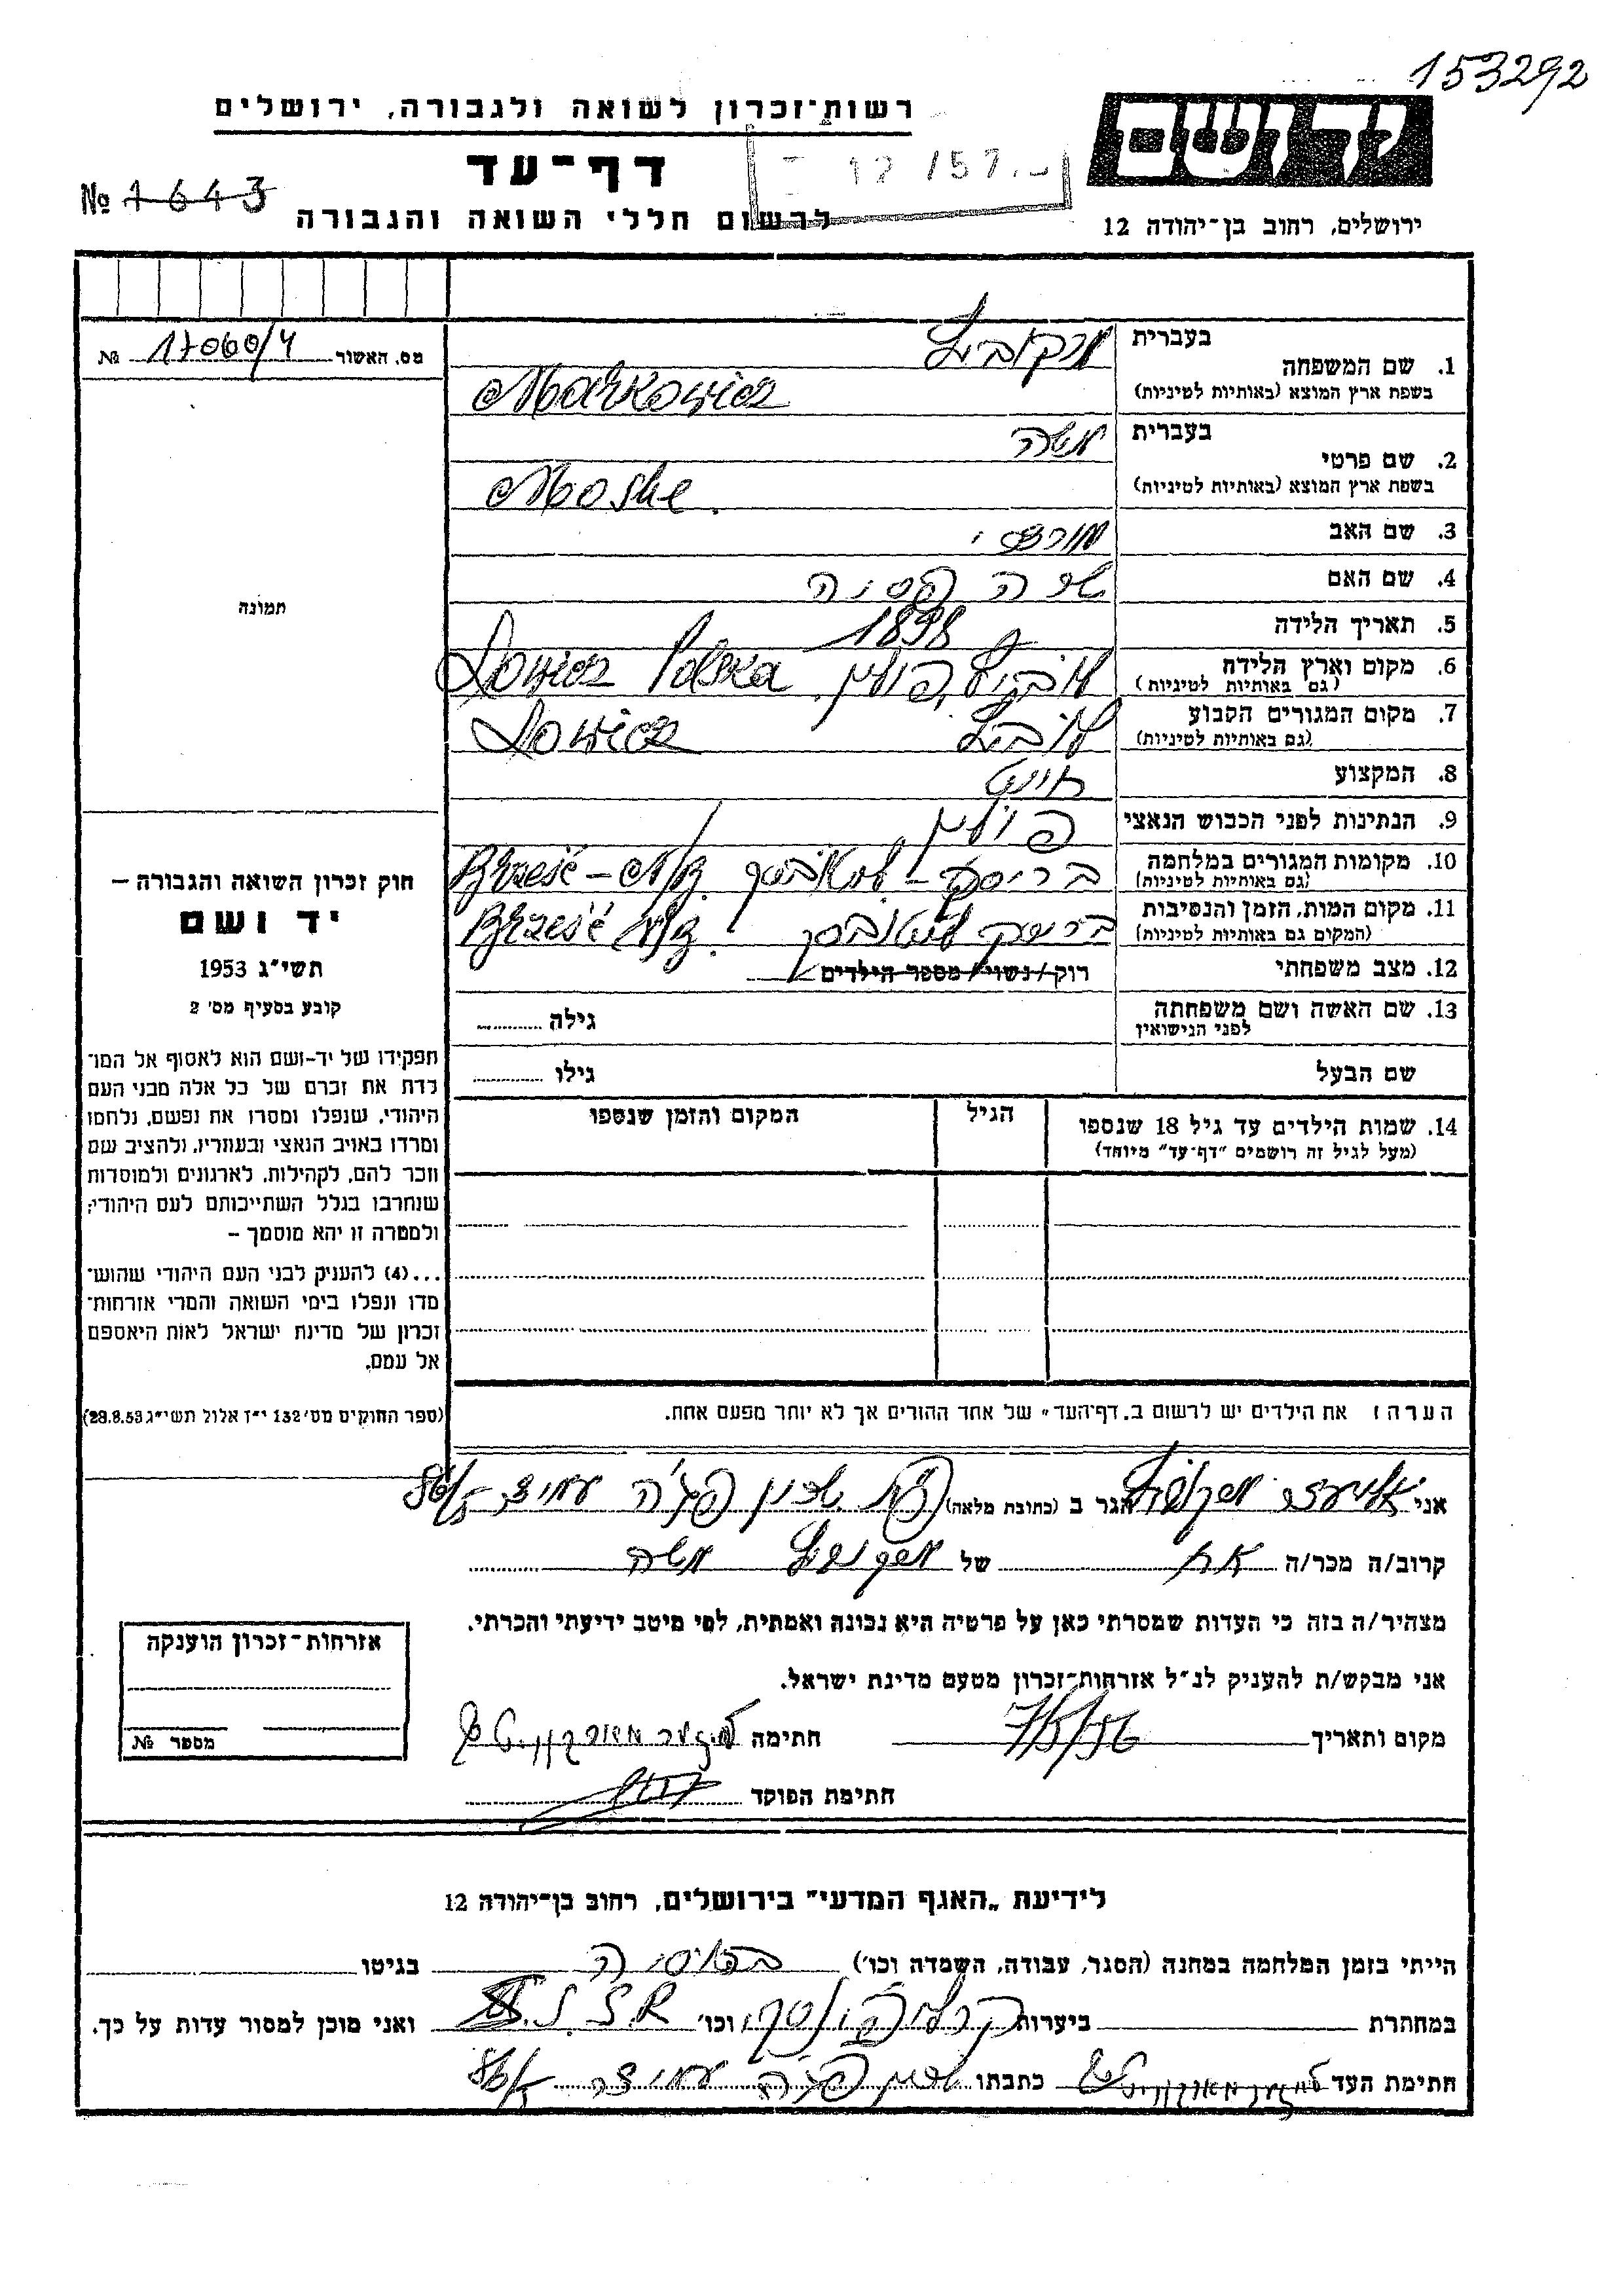 153292
רשות־זכרון לשואה ולגבורה, ירושלים
דף־עד
לרשום חללי השואה והגבורה
№ 1643
ירושלים, רחוב בן־יהודה 12
מס. האשור 17060/4 №
בעברית מרקוביץ
1. שם המשפחה
בשפת ארץ המוצא (באותיות לטיניות) Markowicz
בעברית משה
2. שם פרטי
בשפת ארץ המוצא (באותיות לטיניות) Moshe
3. שם האב מורדכי
4. שם האם שרה
5. תאריך הלידה 1898
6. מקום וארץ הלידה לוביץ, פולין. Lowicz Polska
(גם באותיות לטיניות)
7. מקום המגורים הקבוע לוביץ Lowicz
(גם באותיות לטיניות)
8. המקצוע חייט
9. הנתינות לפני הכבוש הנאצי פולין
10. מקומות המגורים במלחמה בריסק - ליטאבסק Brześć - n/B.
(גם באותיות לטיניות)
11. מקום המות, הזמן והנסיבות בריסק ליטובסק Brześć n/B.
(המקום גם באותיות לטיניות)
12. מצב משפחתי רוק/נשוי/מספר הילדים
13. שם האשה ושם משפחתה גילה
לפני הנישואין
שם הבעל גילו
14. שמות הילדים עד גיל 18 שנספו הגיל המקום והזמן שנספו
(מעל לגיל זה רושמים "דף־עד" מיוחד)
תמונה
חוק זכרון השואה והגבורה –
יד ושם
תשי״ג 1953
קובע בסעיף מס׳ 2
תפקידו של יד-ושם הוא לאסוף אל המו־
לדת את זכרם של כל אלה מבני העם
היהודי, שנפלו ומסרו את נפשם, נלחמו
ומרדו באויב הנאצי ובעוזריו, ולהציב שם
וזכר להם, לקהילות, לארגונים ולמוסדות
שנחרבו בגלל השתייכותם לעם היהודי;
ולמטרה זו יהא מוסמך –
...(4) להעניק לבני העם היהודי שהוש־
מדו ונפלו בימי השואה והמרי אזרחות־
זכרון של מדינת ישראל לאות היאספם
אל עמם.
(ספר החוקים מס׳ 132 י״ז אלול תשי״ג 28.8.53)
הערה: את הילדים יש לרשום ב„דף־העד״ של אחד ההורים אך לא יותר מפעם אחת.
אני אליעזר מרקוביץ הגר ב (כתובת מלאה)
קרוב/ה מכר/ה אח של מרקוביץ משה
מצהיר/ה בזה כי העדות שמסרתי כאן על פרטיה היא נכונה ואמתית, לפי מיטב ידיעתי והכרתי.
אני מבקש/ת להעניק לנ״ל אזרחות־זכרון מטעם מדינת ישראל.
מקום ותאריך 7/5/56 חתימה
חתימת הפוקד
אזרחות־זכרון הוענקה
מספר №
לידיעת „האגף המדעי״ בירושלים, רחוב בן־יהודה 12
הייתי בזמן המלחמה במחנה (הסגר, עבודה, השמדה וכו׳) ברוסיה בגיטו
במחתרת ביערות וכו׳ S.S.R ואני מוכן למסור עדות על כך.
חתימת העד כתבתו